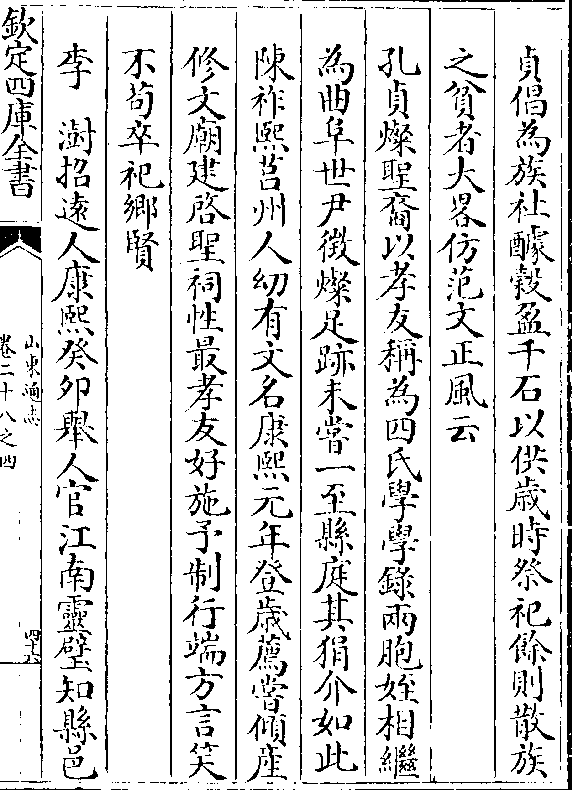 貞倡為族社醵榖盈千石以供歲時祭祀餘則散族
之貧者大畧仿范文正風云
孔貞燦聖裔以孝友稱為四氏學學錄兩胞姪相繼
為曲阜世尹徵燦足跡未嘗一至縣庭其狷介如此
陳祚熙莒州人幼有文名康熙元年登歲薦嘗傾産
修文廟建啓聖祠性最孝友好施予制行端方言笑
不苟卒祀鄉賢
李　澍招遠人康熙癸卯舉人官江南靈璧知縣邑
欽定四庫全書
山東通志
卷二十八之四